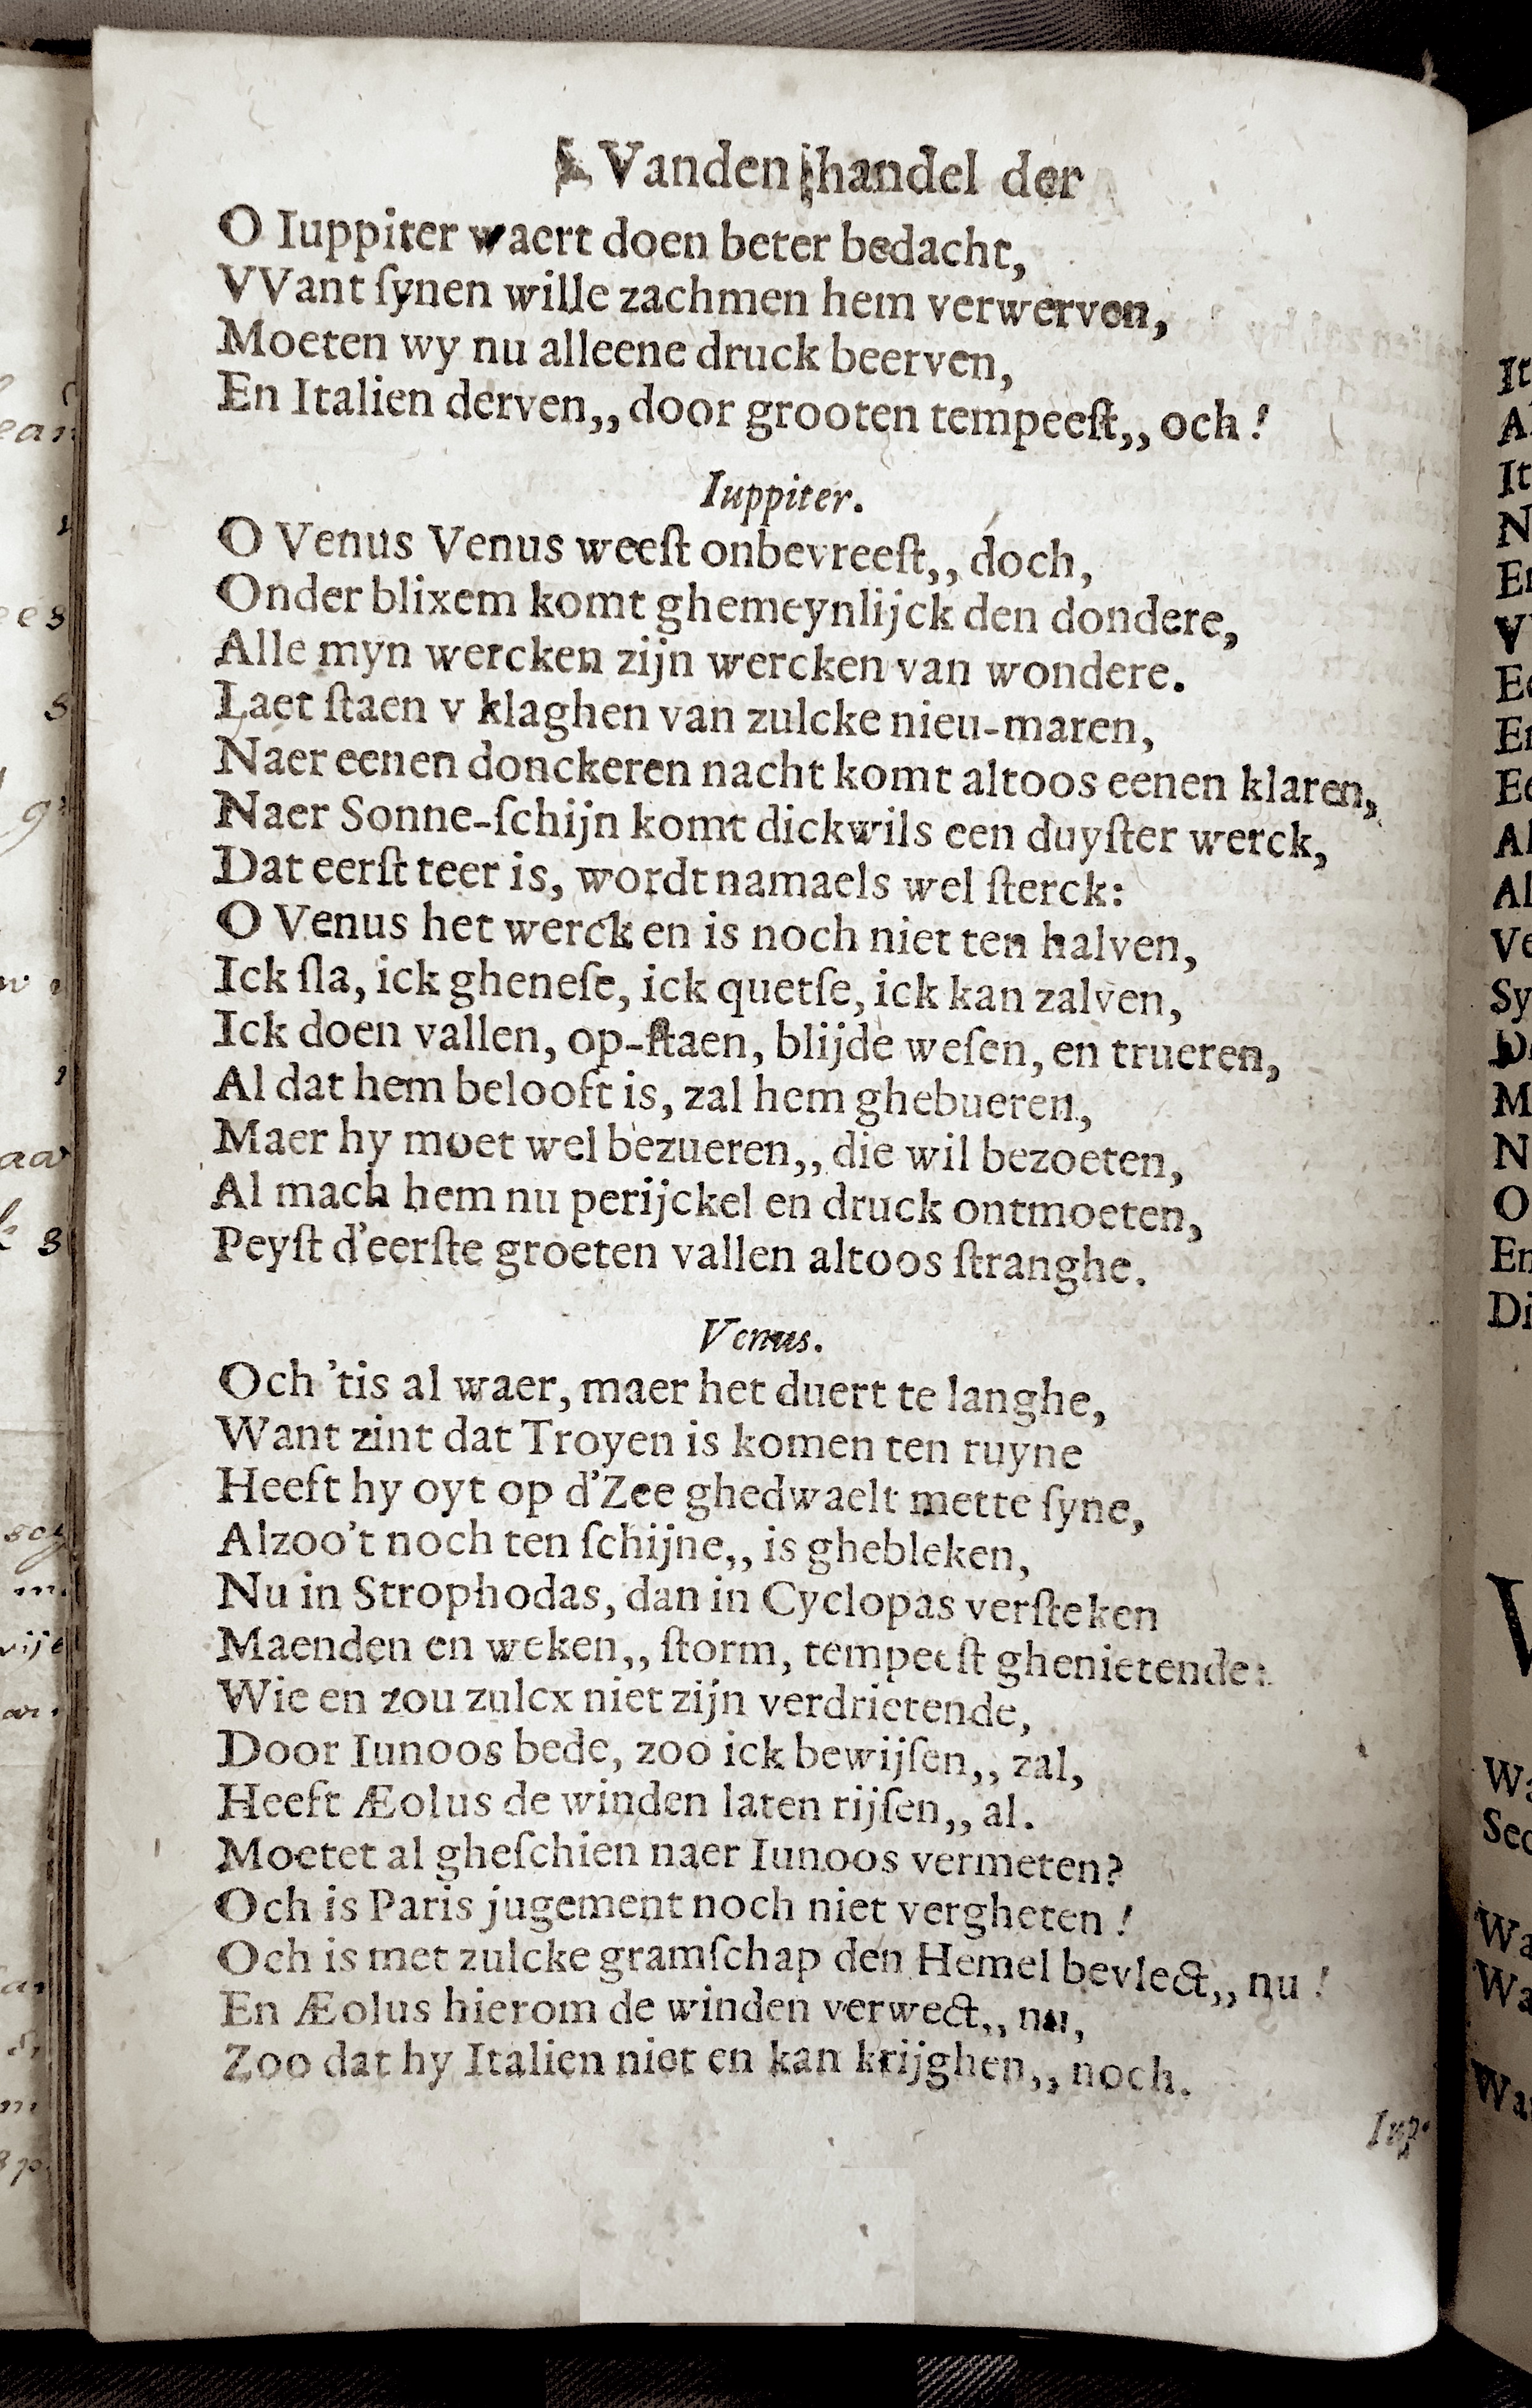 Vanden handel der
O Iuppiter waert doen beter bedacht,
VVant ſynen wille zachmen hem verwerven,
Moeten wy nu alleene druck beerven,
En Italien derven,, door grooten tempeeſt,, och!
Iuppiter.
O Venus Venus weeſt onbevreeſt,, doch,
Onder blixem komt ghemeynlijck den dondere,
Alle myn wercken zijn wercken van wondere.
Laet ſtaen v klaghen van zulcke nieu-maren,
Naer eenen donckeren nacht komt altoos eenen klaren,
Naer Sonne-ſchijn komt dickwils een duyſter werck,
Dat eerſt teer is, wordt namaels wel ſterck:
O Venus het werck en is noch niet ten halven,
Ick ſla, ick gheneſe, ick quetſe, ick kan zalven,
Ick doen vallen, op-ſtaen, blijde weſen, en trueren,
Al dat hem belooft is, zal hem ghebueren,
Maer hy moet wel bezueren,, die wil bezoeten,
Al mach hem nu perijckel en druck ontmoeten,
Peyſt d'eerſte groeten vallen altoos ſtranghe.
Venus.
Och 'tis al waer, maer het duert te langhe,
Want zint dat Troyen is komen ten ruyne
Heeft hy oyt op d'Zee ghedwaelt mette ſyne,
Alzoo't noch ten ſchijne,, is ghebleken,
Nu in Strophodas, dan in Cyclopas verſteken
Maenden en weken,, ſtorm, tempeeſt ghenietende:
Wie en zou zulcx niet zijn verdrietende,
Door Iunoos bede, zoo ick bewijſen,, zal,
Heeft Æolus de winden laten rijſen,, al.
Moetet al gheſchien naer Iunoos vermeten?
Och is Paris jugement noch niet vergheten!
Och is met zulcke gramſchap den Hemel bevlect,, nu!
En Æolus hierom de winden verwect,, nu,
Zoo dat hy Italien niet en kan krijghen,, noch.
Iup-